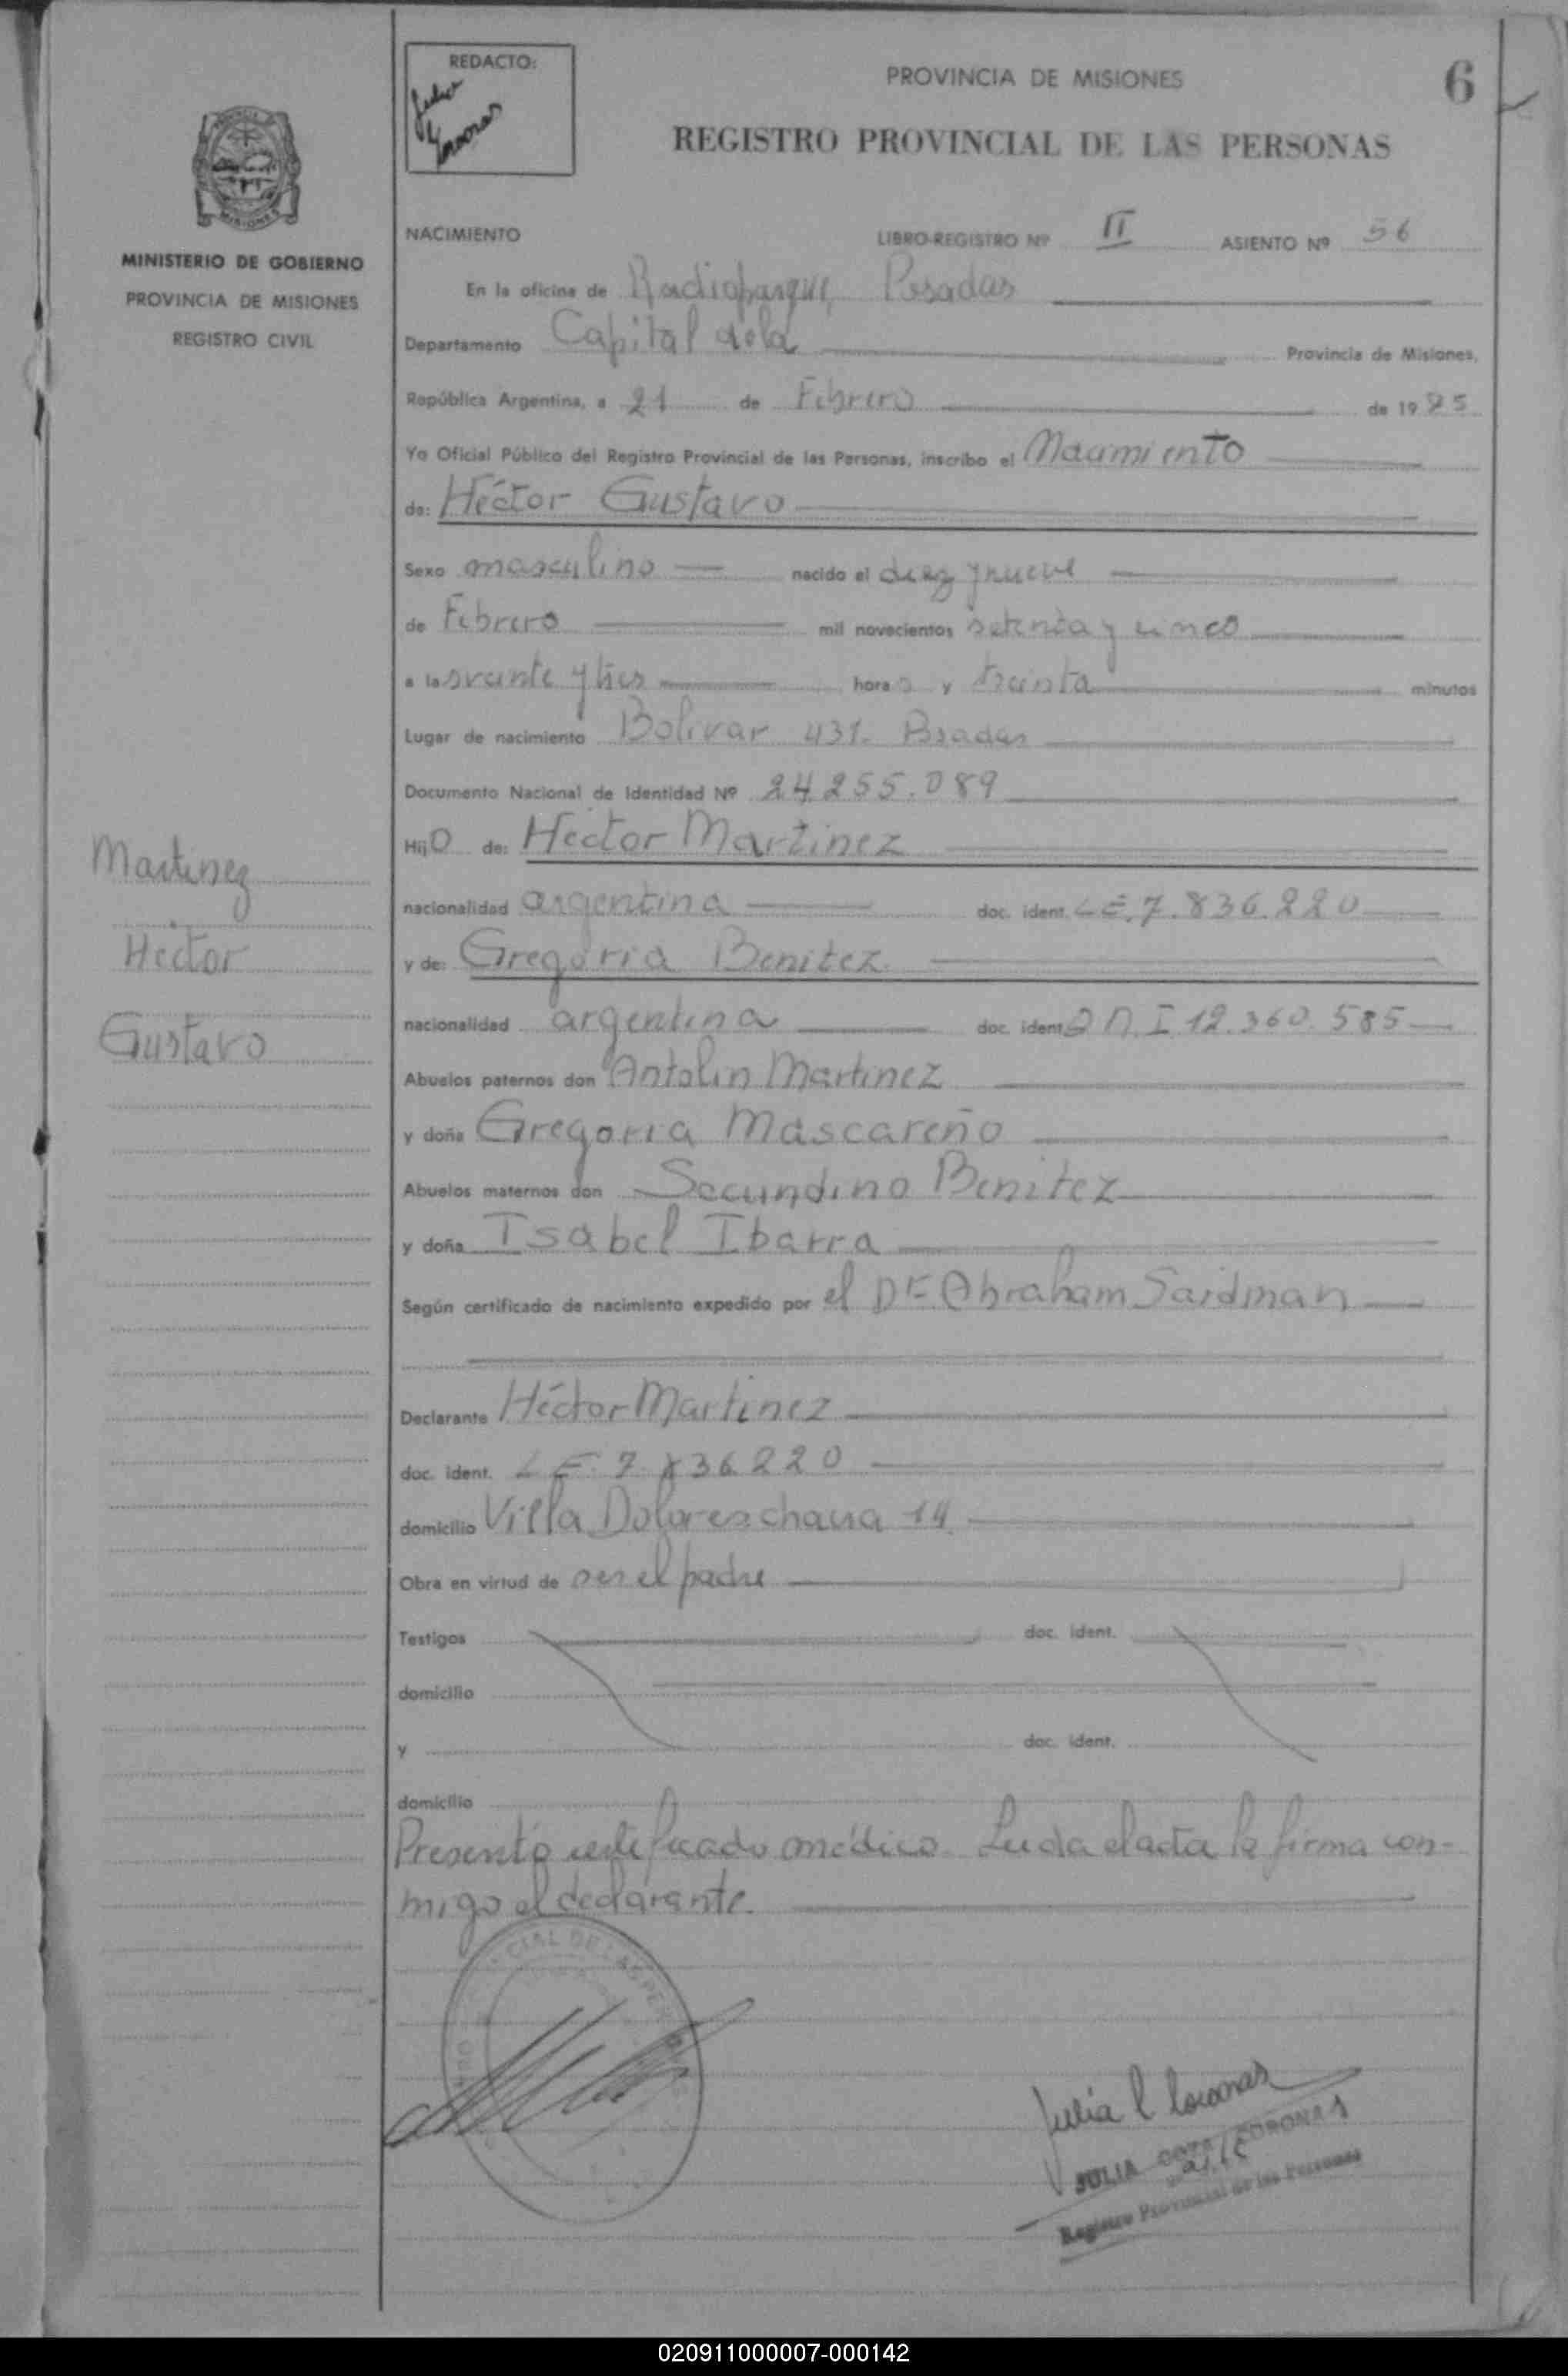 REDACTO:
PROVINCIA DE MISIONES
6
REGISTRO PROVINCIAL DE LAS PERSONAS
MISIONES
MINISTERIO DE GOBIERNO
PROVINCIA DE MISIONES
REGISTRO CIVIL
NACIMIENTO LIBRO-REGISTRO Nº II ASIENTO Nº 56
En la oficina de Posadas
Departamento Capital de la Provincia de Misiones,
República Argentina, a 21 de Febrero de 1975
Yo Oficial Público del Registro Provincial de las Personas, inscribo el Nacimiento
de: Héctor Gustavo
Sexo masculino nacido el diez y nueve
de Febrero mil novecientos setenta y cinco
a las veinte y tres horas y treinta minutos
Lugar de nacimiento Bolivar 431. Posadas
Documento Nacional de Identidad Nº 24.255.089
Hijo de: Hector Martinez
nacionalidad argentina doc. ident. L.E. 7.836.220
y de: Gregoria Benitez
nacionalidad argentina doc. ident. D.N.I 12.360.585
Abuelos paternos don Antolin Martinez
y doña Gregoria Mascareño
Abuelos maternos don Secundino Benitez
y doña Isabel Ibarra
Según certificado de nacimiento expedido por el Dr. Abraham Saidman
Declarante Héctor Martinez
doc. ident. L.E. 7.836.220
domicilio Villa Dolores chacra 14
Obra en virtud de ser el padre
Testigos doc. ident.
domicilio
y doc. ident.
domicilio
Presentó certificado médico. Leida el acta la firma con-
migo el declarante.
Martinez
Hector
Gustavo
CIAL DE LAS PER
JULIA CORONAS
Registro Provincial de las Personas
020911000007-000142